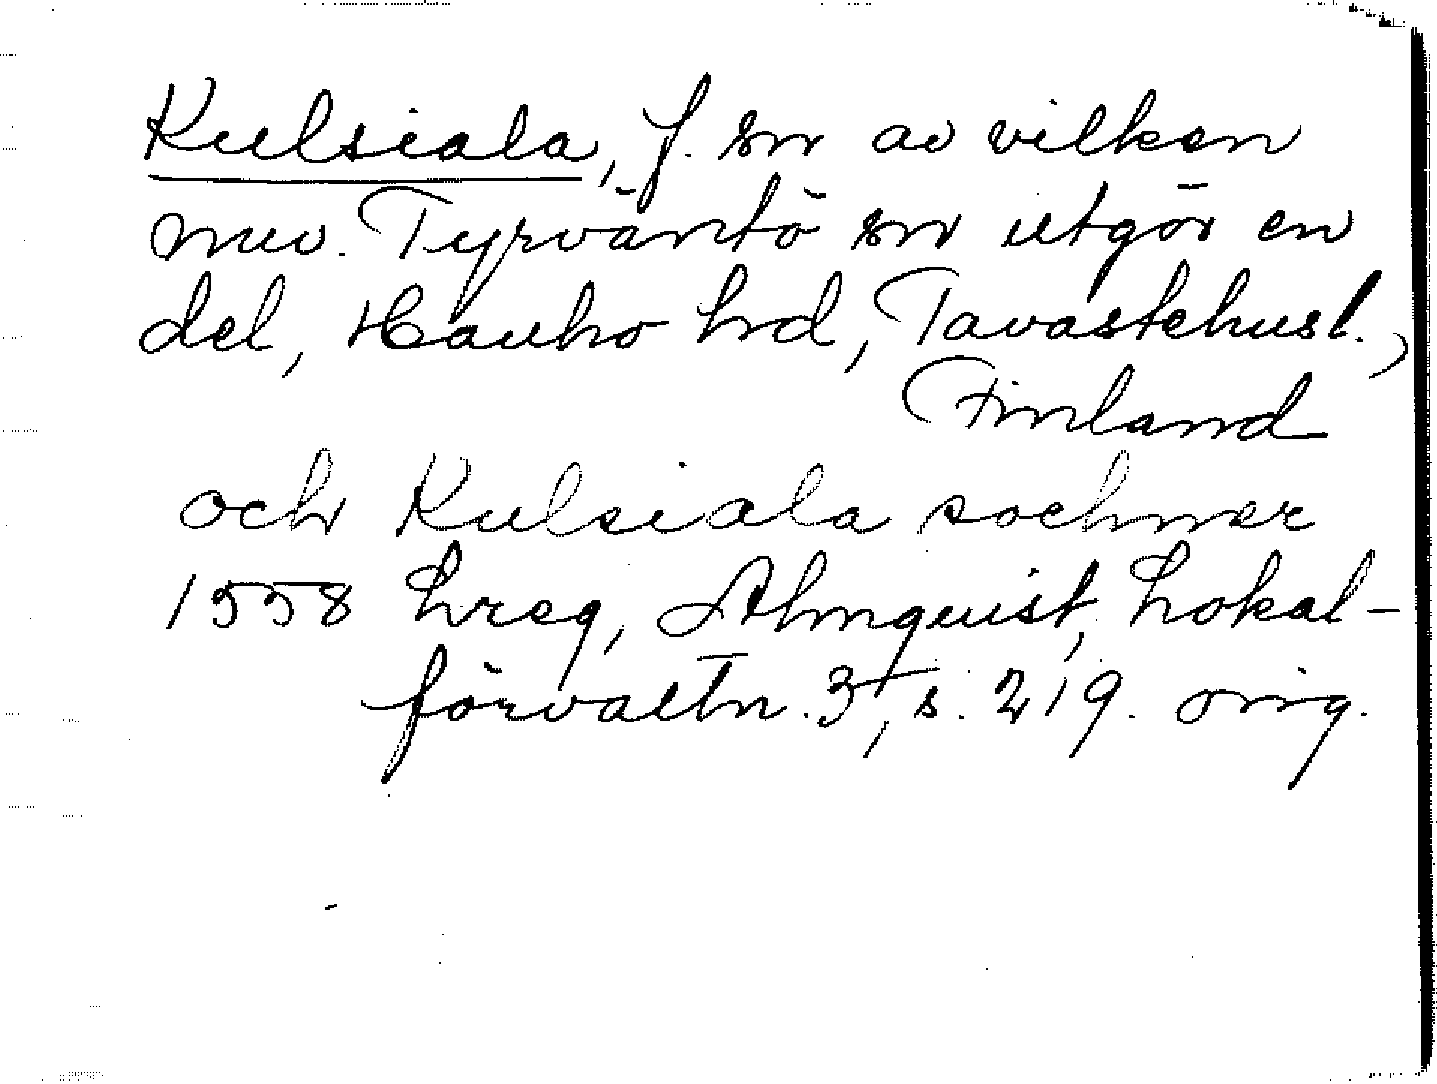 Kulsiala, f. sn av vilken
nuv. Tyrväntö sn utgör en
del, Hauho hd, Tavastehusl.,
Finland
och Kulsiala sochner
1558 Lreg, Almquist, Lokal-
förvaltn. 3, s. 219. orig.